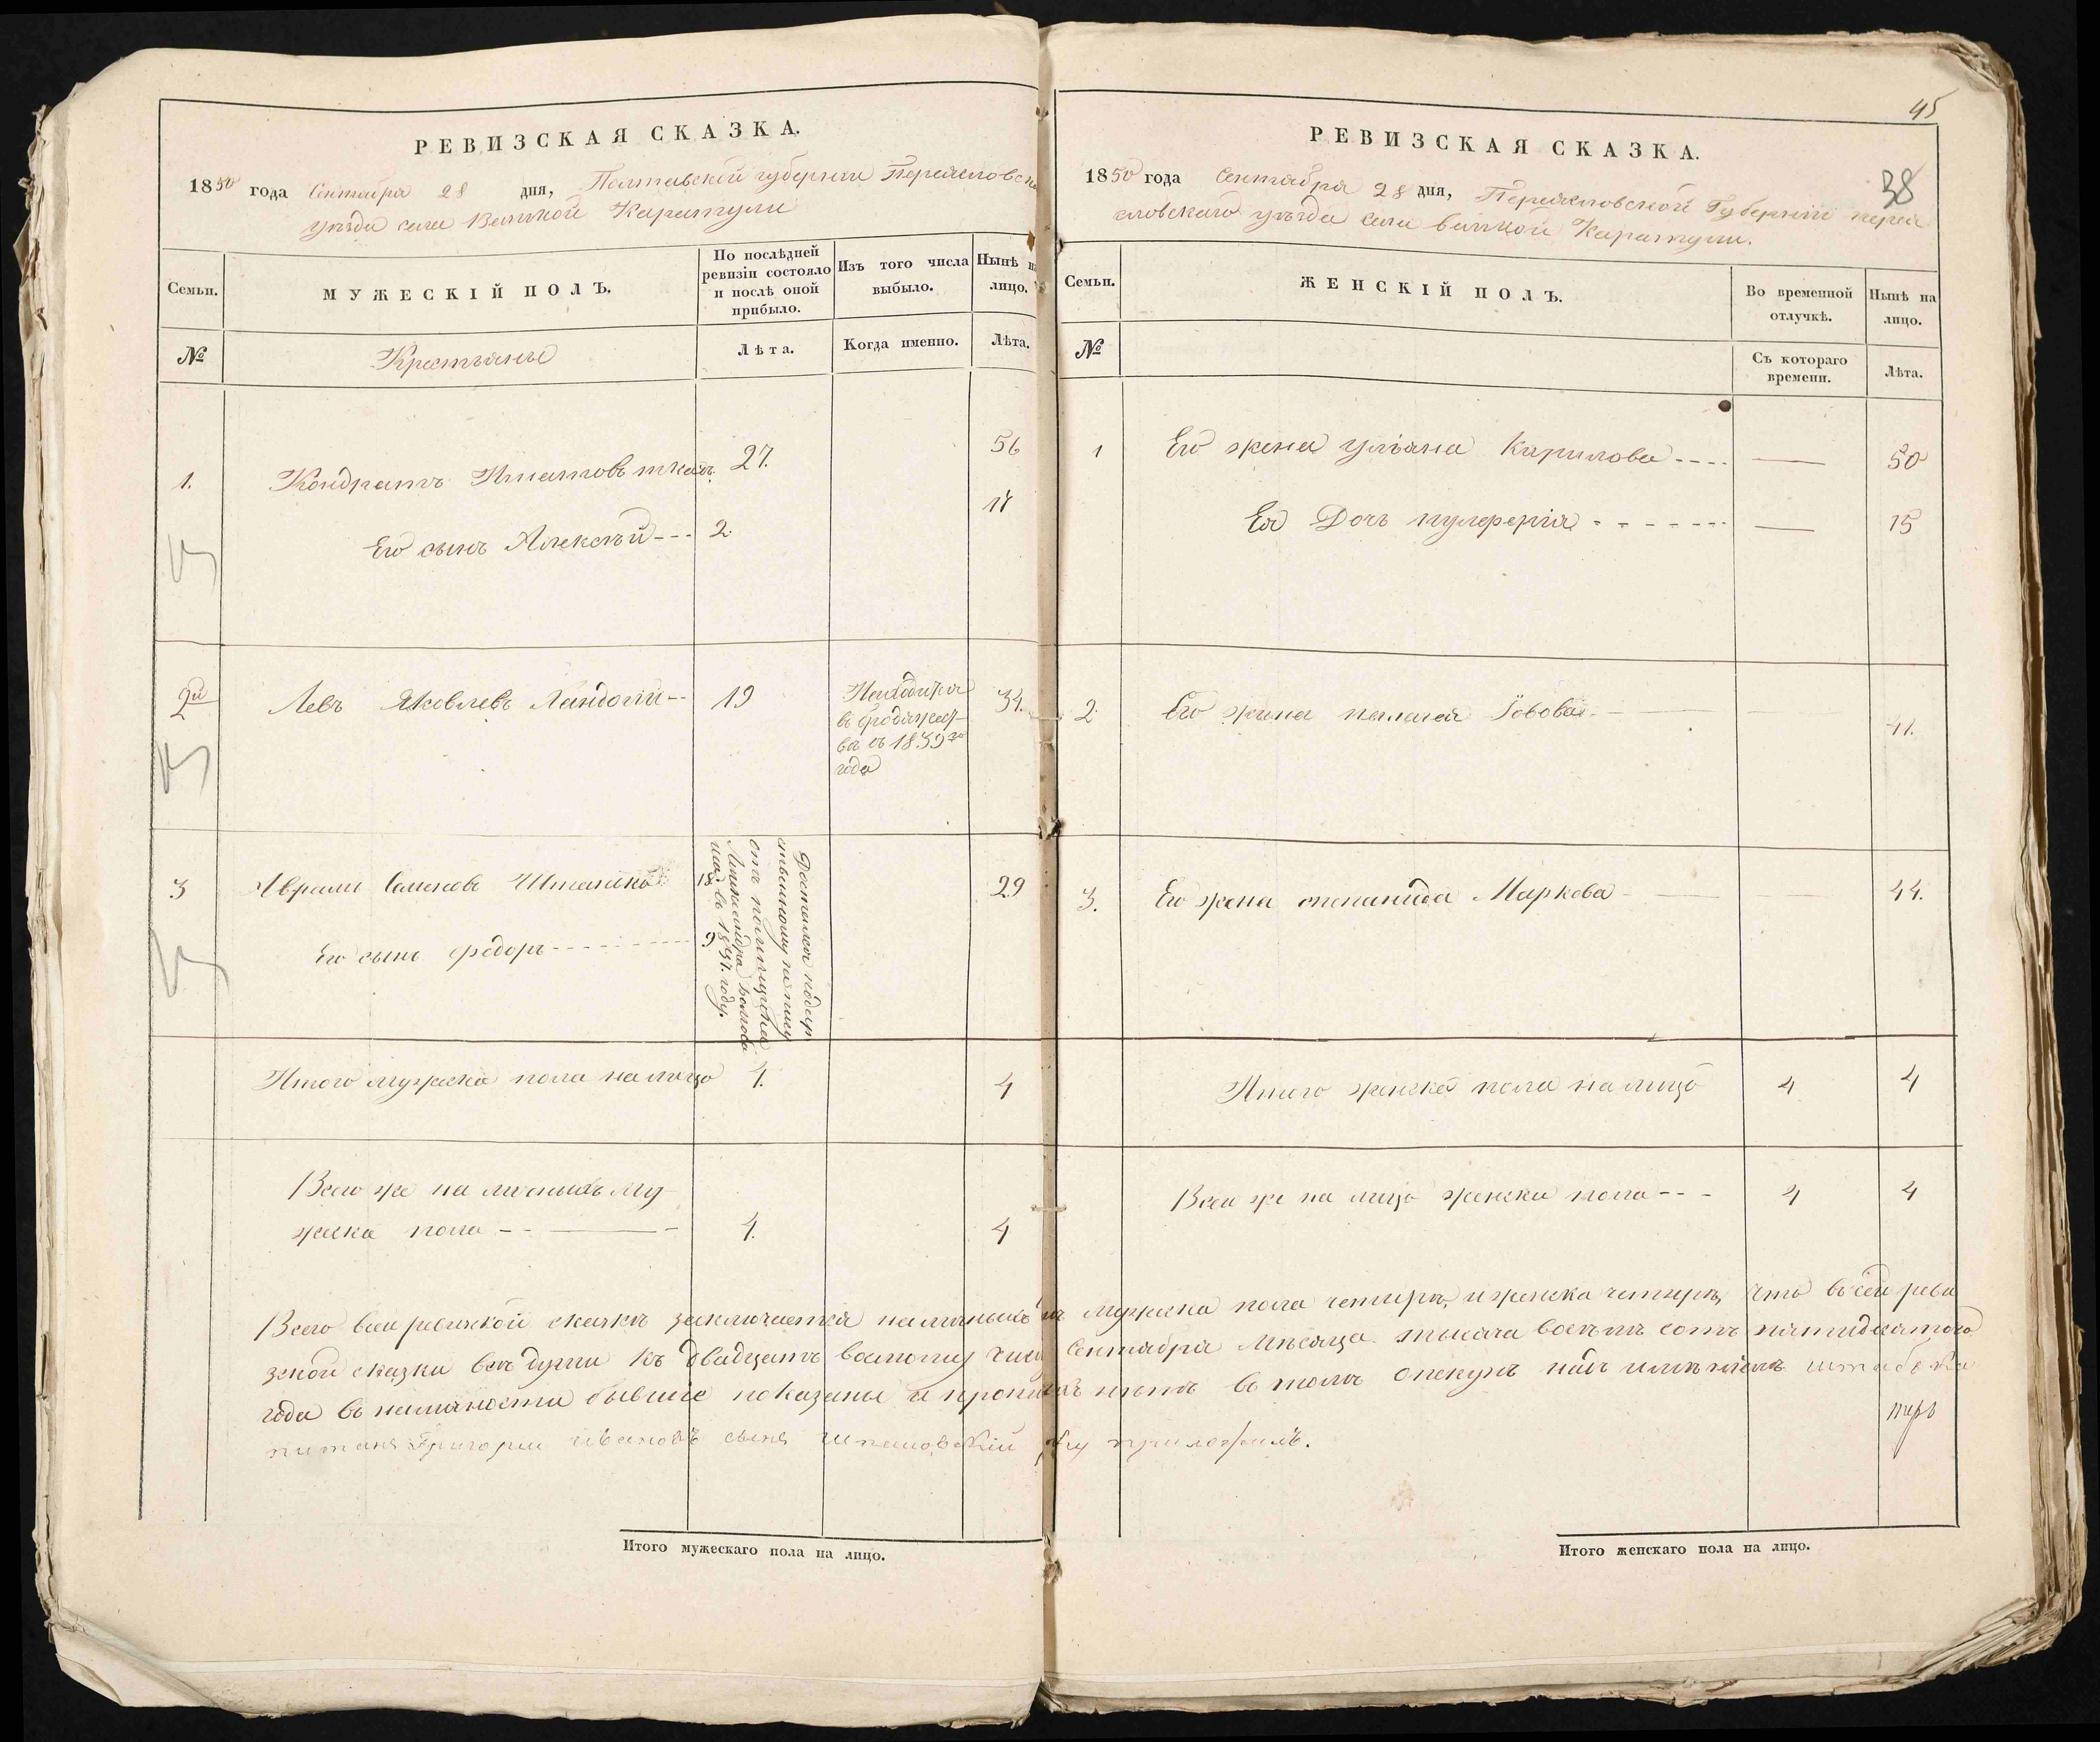 РЕВИЗСКАЯ СКАЗКА.
1850 года Сентября 28 дня, Полтавской губернии Переясловска
уезда села Великой Каратули
Семьи.
МУЖЕСКІЙ ПОЛЪ.
По послѣдней
ревизіи состояло
и послѣ оной
прибыло.
Изъ того числа
выбыло.
Нынѣ на
лицо.
№
Крестьяне
Лѣта.
Когда именно.
Лѣта.
1.
Кондратъ Игнатовъ ткачъ
27.
56
Его сынъ Алексѣй
2.
2й
Левъ Яковлевъ
19
Находится
въ бродяжест-
ве съ 1839го
года
34.
3
Семеновъ
18
29
Его сынъ федоръ
9
Достался
отъ помещика
въ 1847. году.
Итого мужска пола на лицо 4.
4
Всего же на личныхъ му
жеска пола
4.
4
РЕВИЗСКАЯ СКАЗКА.
45
38
1850 года Сентября 28 дня, Переясловской Губерніи перея
словскаго уѣзда села великой Каратули.
Семьи.
ЖЕНСКІЙ ПОЛЪ.
Во временной
отлучкѣ.
Нынѣ на
лицо.
№
Съ котораго
времени.
Лѣта.
1
Его жена ульяна Кирилова
50
Ея Дочь пулферія
15
2.
Его жена пелагея
41.
3.
Его жена степанида Маркова
44.
Итого женска пола на лицо
4
4
Всего же на лицо женска пола
4
4
Всего всей ревизской сказкѣ заключается наличныхъ мужска пола четыре, и женска четыре, что въ сей реви
зской сказки всѣ души къ двадцать восмому числу Сентября Мѣсяца тысяча восѣмъ сотъ пятидесятого
года въ наличности бывшіе показаны и нѣтъ въ томъ опекунъ надъ имѣніемъ штабъ ка
питанъ Григорий Ивановъ сынъ руку приложилъ.
Итого мужескаго пола на лицо.
Итого женскаго пола на лицо.